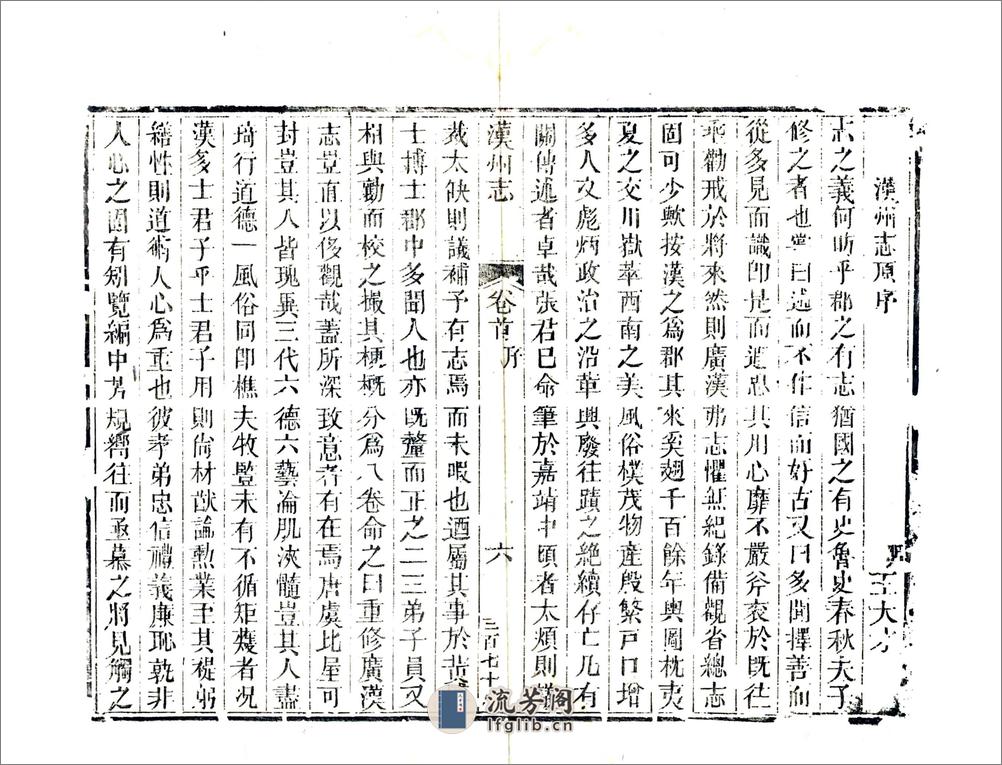 漢州志原序
王大才
志之義何昉乎郡之有志猶國之有史魯史春秋夫子
修之者也嘗曰述而不作信而好古又曰多聞擇善而
從多見而識卽是而遡忠其用心靡不嚴斧袞於旣往
乖勸戒於將來然則廣漢弗志懼無紀錄備觀省總志
固可少歟按漢之爲郡其來奚翅千百餘年輿圖枕夷
夏之交川嶽萃西南之美風俗樸茂物產殷繁戸口增
多人文彪炳政治之沿革興廢往蹟之絶續存亡凡有
關傳述者卓哉張君已命筆於嘉靖中頤者太煩則議
漢州志
卷首
序
六
三百七十
裁太缺則議補予有志焉而未暇也迺屬其事於黃
士博士郡中多聞人也亦旣釐而正之二三弟子員又
相與勷而校之撮其梗概分爲八卷命之曰重修廣漢
志豈直以侈觀哉蓋所深致意者有在焉唐虞比屋可
封豈其人皆瑰異三代六德六藝淪肌浹髓豈其人盡
琦行道德一風俗同卽樵夫牧豎未有不循矩矱者况
漢多士君子乎士君子用則尙材猷論勲業至其褆躬
繕性則道術人心爲重也彼孝弟忠信禮義廉恥孰非
人心之固有矧覽編中芳規嚮往而亟慕之將見觸之
流芳阁
lfglib.cn